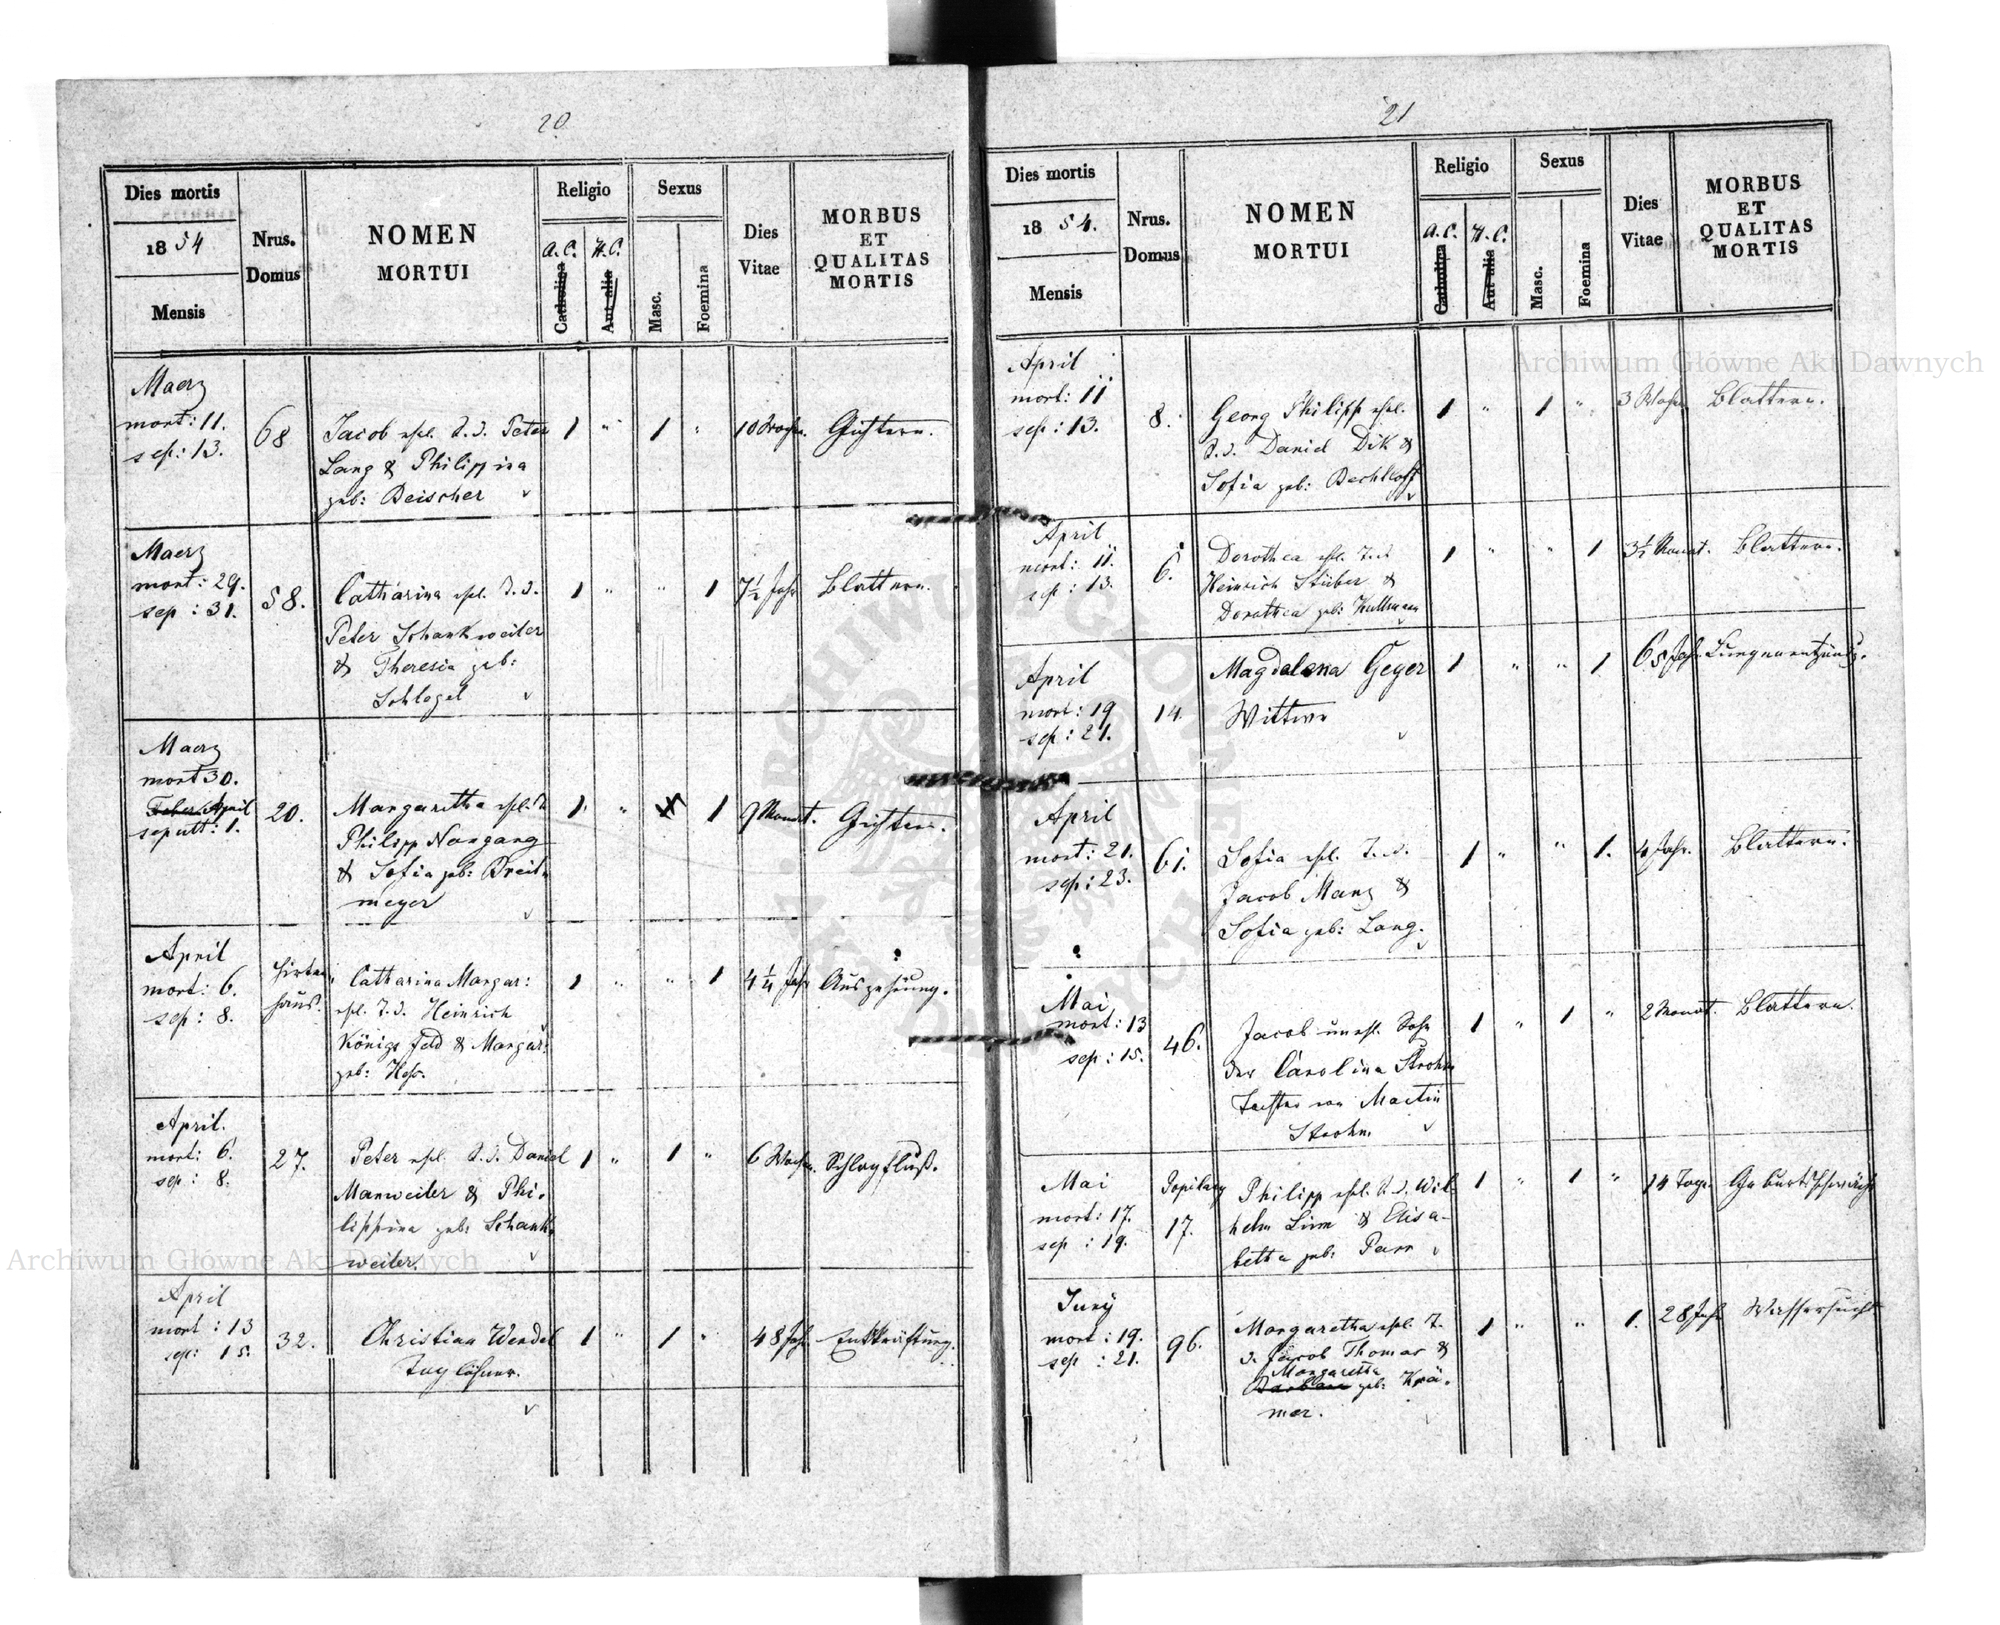 20
Dies mortis
1854
Mensis
Nrus.
Domus
NOMEN
MORTUI
Religio
A. C.
Catholica
H. C.
Aut alia
Sexus
Masc.
Foemina
Dies
Vitae
MORBUS
ET
QUALITAS
MORTIS
Maerz
mort: 11.
sep: 13.
68
Jacob ehel. S. d. Peter
Lang & Philippina
geb: Beischer
1 " 1 "
10 Wochen.
Maerz
mort: 29.
sep: 31.
58.
Catharina ehel. T. d.
Peter Schankweiler
& Theresia geb:
Schlogel
1 " " 1
7½ Jahr
Blattern.
Maerz
mort 30.
April
sepult: 1.
20.
Margaretha ehel. T. d.
Philipp Nargang
& Sofia geb: Breit-
meyer
1 " 1
9 Monat.
April
mort: 6.
sep: 8.
Hirten
haus.
Catharina Margar:
ehel. T. d. Heinrich
Königsfeld & Margar:
geb: Hess.
1 " " 1
4¼ Jahr
Auszehrung.
April.
mort: 6.
sep: 8.
27.
Peter ehel. S. d. Daniel
Manweiler & Phi-
lippina geb: Schank-
weiler.
1 " 1 "
6 Wochen.
Schlagfluß.
April
mort: 13
sep: 15.
32.
Christian Wendel
Taglöhner.
1 " 1 "
48 Jahr
Entkräftung.
21
Dies mortis
1854.
Mensis
Nrus.
Domus
NOMEN
MORTUI
Religio
A. C.
Catholica
H. C.
Aut alia
Sexus
Masc.
Foemina
Dies
Vitae
MORBUS
ET
QUALITAS
MORTIS
April
mort: 11
sep: 13.
8.
Georg Philipp ehel.
S. d. Daniel Dik &
Sofia geb: Bechtloff
1 " 1 "
3 Wochen
Blattern.
April
mort: 11.
sep: 13.
6.
Dorothea ehel. T. d.
Heinrich Stüber &
Dorothea geb: Kullmann
1 " " 1
3½ Monat.
Blattern.
April
mort: 19
sep: 21.
14.
Magdalena Geyer
Wittwe
1 " " 1
65 Jahr
Lungenentzündg.
April
mort: 21.
sep: 23.
61.
Sofia ehel. T. d.
Jacob Manz &
Sofia geb: Lang.
1 " " 1.
4 Jahr.
Blattern.
Mai
mort: 13
sep: 15.
46.
Jacob unehl. Sohn
der Carolina Strohm
Tochter von Martin
Strohm
1 " 1 "
2 Monat.
Blattern.
Mai
mort: 17.
sep: 19.
17.
Philipp ehel. S. d. Wil-
helm Linn & Elisa-
betha geb: Parr
1 " 1 "
14 Tage.
Geburtsschwäche
Juny
mort: 19.
sep: 21.
96.
Margaretha ehel. T.
d. Jacob Thomas &
Margaretha
Barbara geb: Krä-
mer.
1 " " 1.
28 Jahr
Wassersucht
Archiwum Główne Akt Dawnych
Archiwum Główne Akt Dawnych